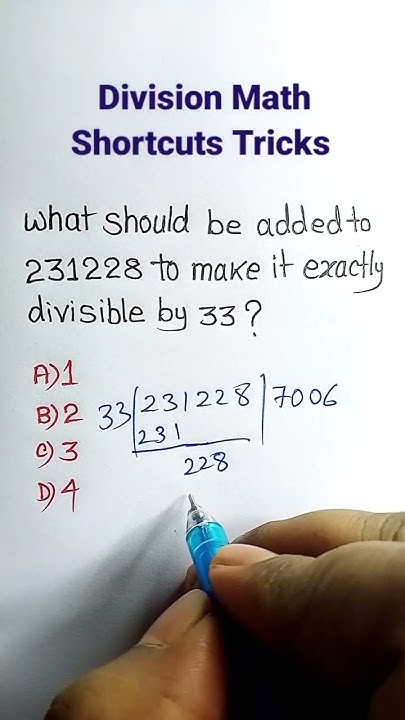 Division Math
Shortcuts Tricks
What should be added to
231228 to make it exactly
divisible by 33?
A) 1
B) 2
C) 3
D) 4
33 231228 7006
231
228